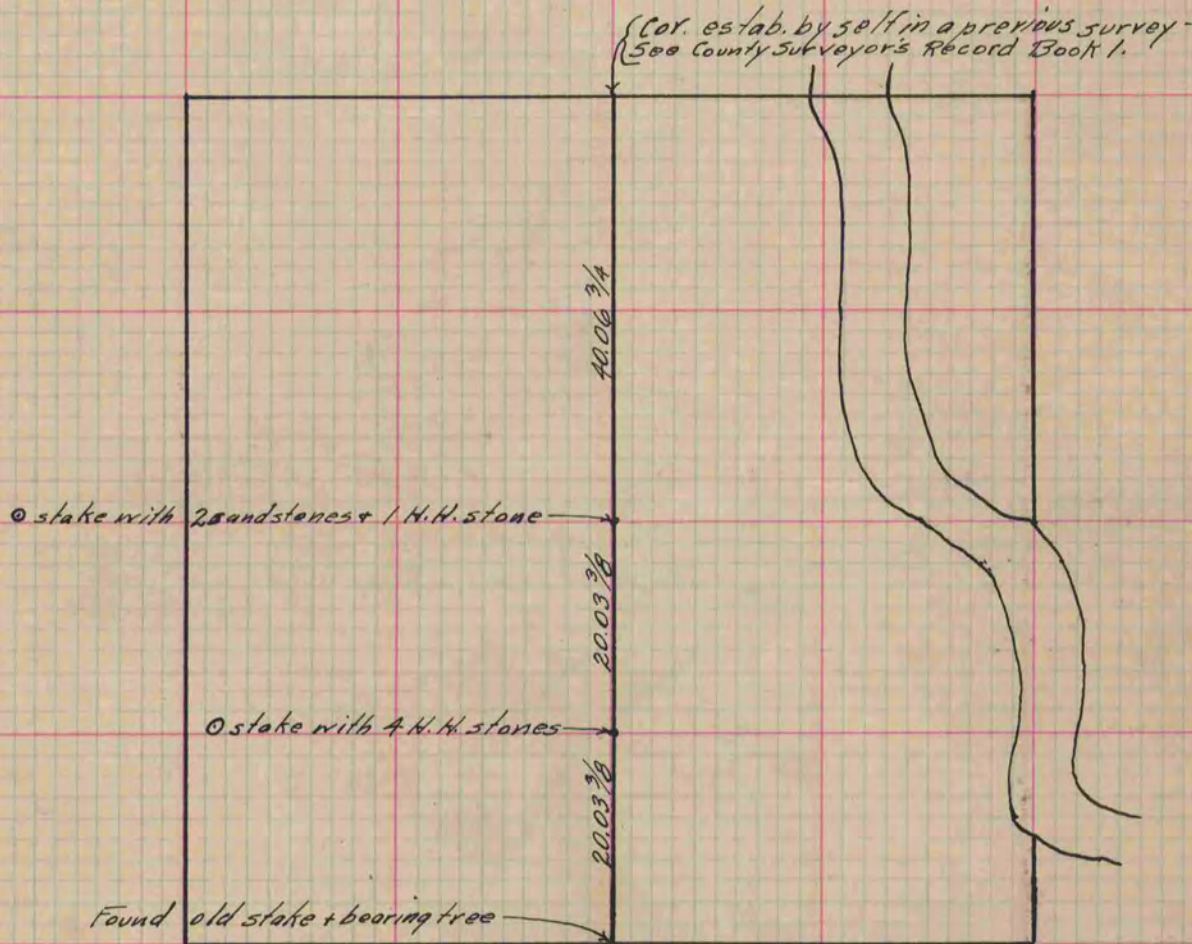 Cor. estab. by self in a previous survey -
See County Surveyor's Record Book 1.
40.06 3/4
stake with 2 sandstones + 1 H.H. stone
20.03 3/8
stake with 4 H.H. stones
20.03 3/8
Found old stake + bearing tree